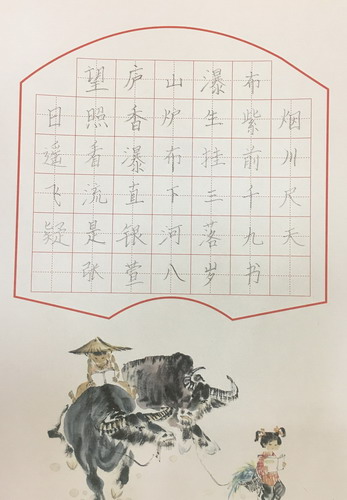 望庐山瀑布
日照香炉生紫烟
遥看瀑布挂前川
飞流直下三千尺
疑是银河落九天
张萱八岁书